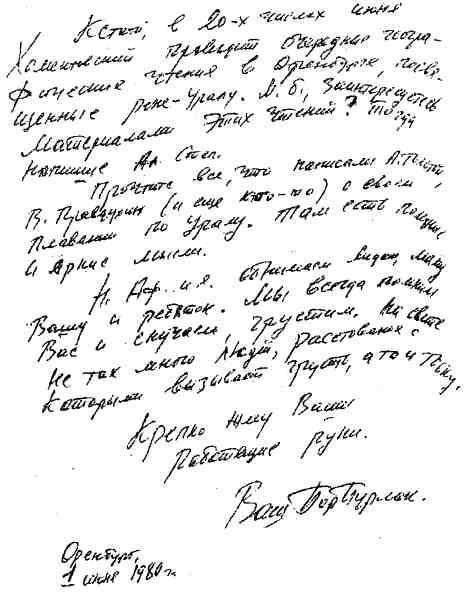 Кстати, в 20-х числах июня
Хоментовский проводит очередные геогра-
фические чтения в Оренбурге, посвя-
щенные реке-Уралу. М. б., заинтересуетесь
материалами этих чтений? Тогда
напишите Ал. Степ.
Прочтите все, что написали А. Толстой,
В. Правдухин (и еще кто-то) о своем
плавании по Уралу. Там есть
и яркие мысли.
и я обнимаем Лидию, маму
Вашу и ребяток. Мы всегда помним
Вас и скучаем, грустим. На свете
не так много людей, расставание с
которыми вызывает грусть, а то и тоску.
Крепко жму Ваши
работящие руки.
Ваш Бор Бурлак.
Оренбург,
1 июня 1980 г.